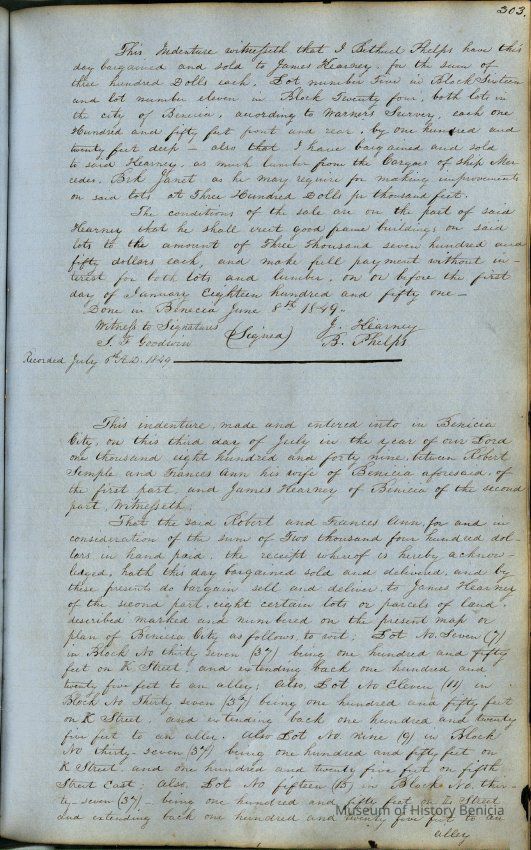 303.
This Indenture witnesseth that I Bethuel Phelps have this
day bargained and sold to James Kearney, for the sum of
three hundred Dolls each, Lot number Five in Block Sixteen
and lot number eleven in Block Twenty four, both lots in
the city of Benicia, according to Warner's Survey, each one
Hundred and fifty feet front and rear, by one hundred and
twenty feet deep — also that I have bargained and sold
to said Kearney, as much lumber from the Cargoes of Ship Mer-
cedes, Brk Janet as he may require for making improvements
on said lots at Three Hundred Dolls pr thousand feet.
The conditions of the sale are on the part of said
Kearney that he shall erect good frame buildings on said
lots to the amount of Three Thousand seven hundred and
fifty dollars each, and make full payment without in-
terest for both lots and lumber, on or before the first
day of January Eighteen hundred and fifty one —
Done in Benicia June 8th 1849.
Witness to Signatures
(Signed)
J. Kearney
S. F Goodwin
B. Phelps
Recorded July 6th A.D. 1849
This indenture, made and entered into in Benicia
City, on this third day of July in the year of our Lord
one thousand eight hundred and forty nine, between Robert
Semple and Frances Ann his wife of Benicia aforesaid, of
the first part, and James Kearney of Benicia of the second
part, Witnesseth.
That the said Robert and Frances Ann, for and in
consideration of the sum of Two thousand four hundred dol-
lars in hand paid, the receipt whereof is hereby acknow-
ledged, hath this day bargained sold and delivered, and by
these presents do bargain sell and deliver, to James Kearney
of the second part, eight certain lots or parcels of land,
described marked and numbered on the present map or
plan of Benicia City as follows, to wit; Lot No. Seven (7)
in Block No thirty seven (37) being one hundred and fifty
feet on K Street, and extending back one hundred and
twenty five feet to an alley; Also, Lot No Eleven (11) in
Block No. Thirty seven (37) being one hundred and fifty feet
on K Street, and extending back one hundred and twenty
five feet to an alley. Also Lot No. nine (9) in Block
No thirty-seven (37) being one hundred and fifty feet on
K Street, and one hundred and twenty five feet on fifth
Street East; also, Lot No fifteen (15) in Block No. thir-
ty-seven (37) — being one hundred and fifty feet on Street
and extending back one hundred and twenty five feet to an
alley
Museum of History Benicia